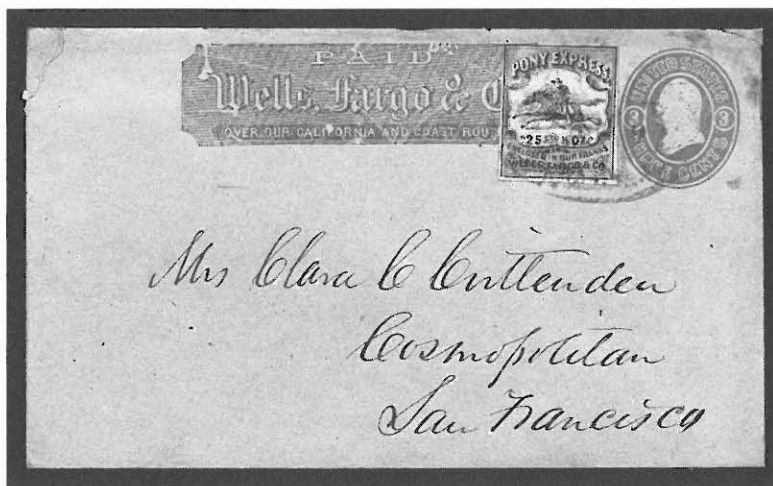 PAID
Wells, Fargo & C
OVER OUR CALIFORNIA AND COAST ROUT
PONY EXPRESS.
25 ½ OZ.
ENCLOSED IN OUR FRANKS
WELLS, FARGO & CO.
UNITED STATES
3 3
THREE CENTS
Mrs Clara C Crittenden
Cosmopolitan
San Francisco